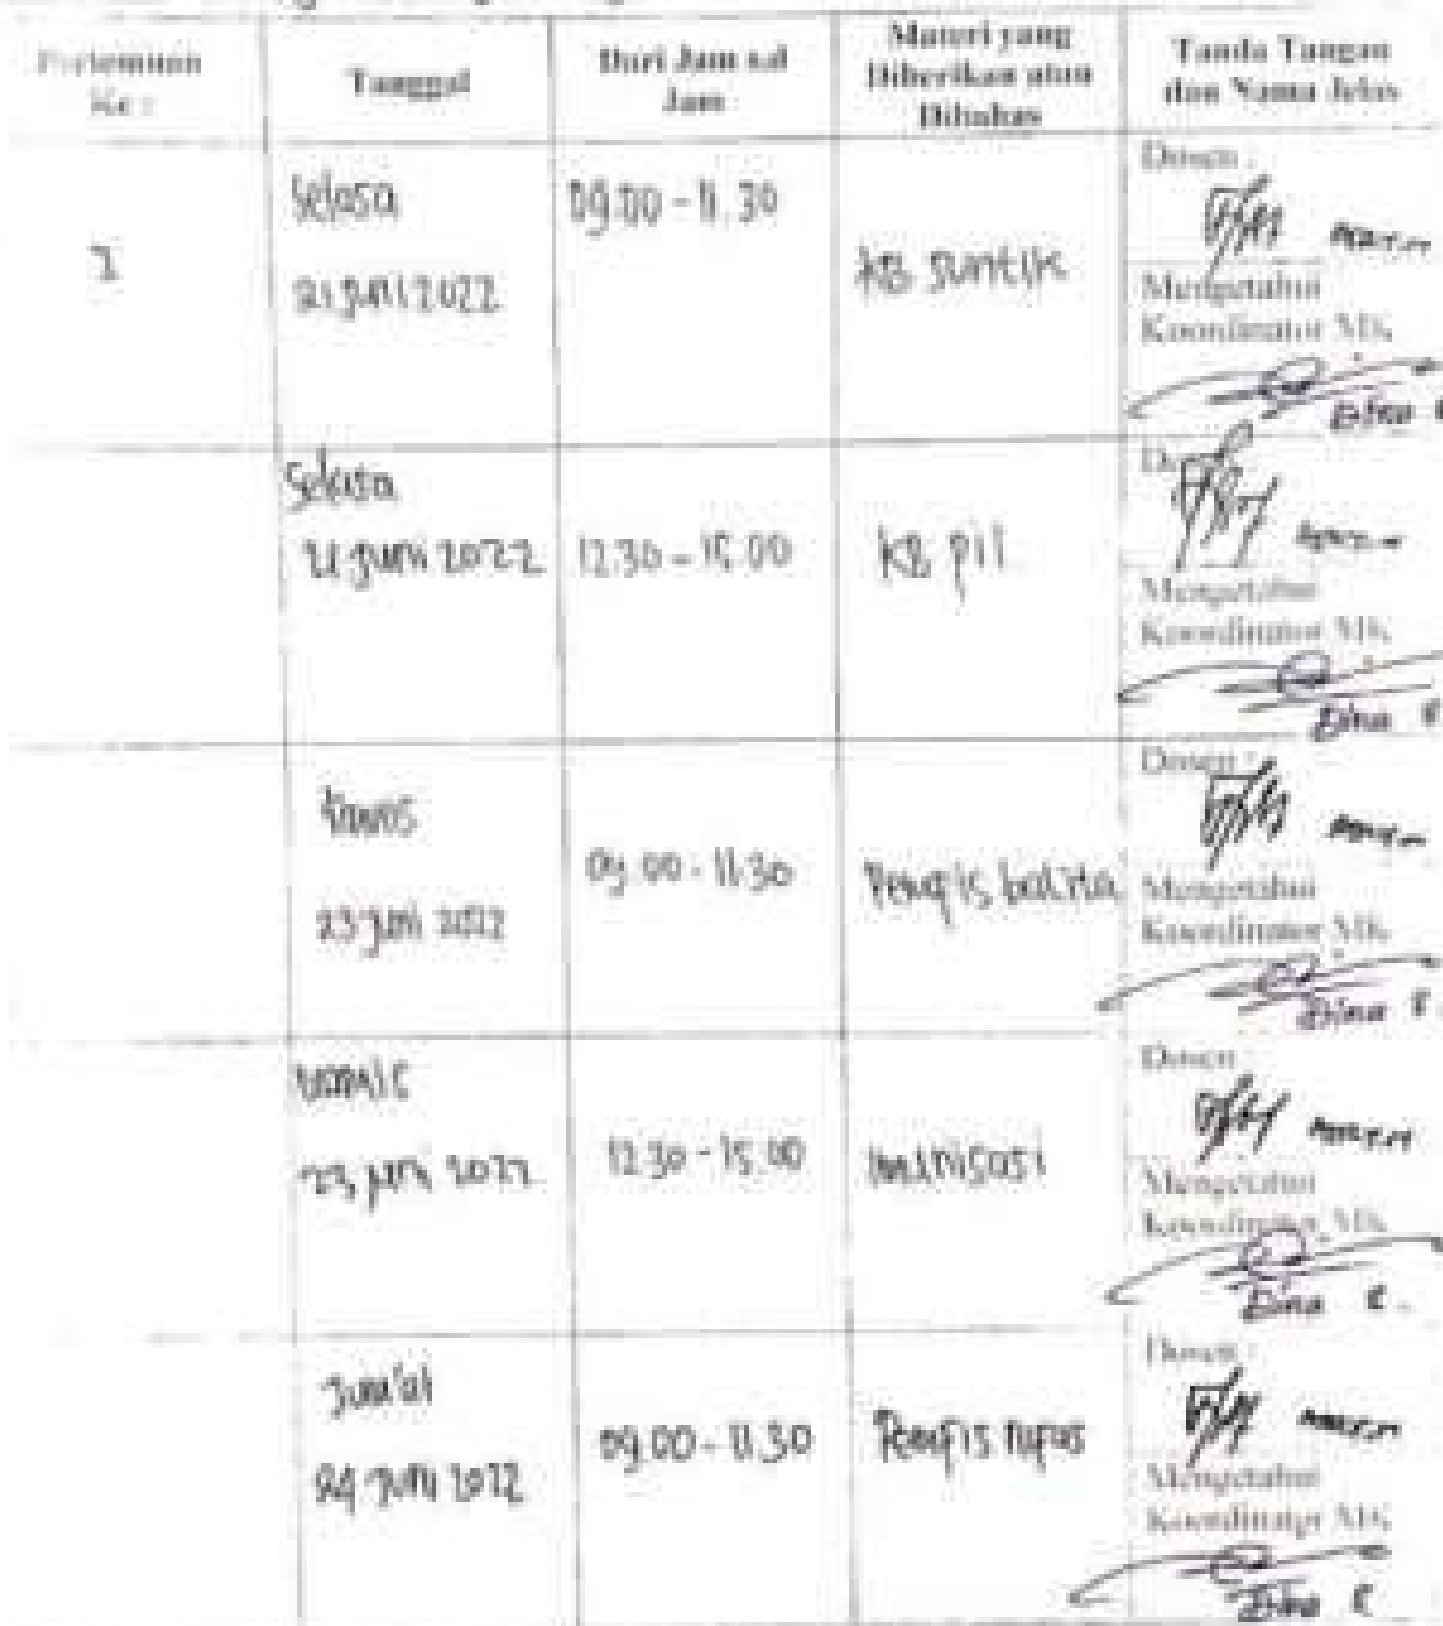 Pertemuan
Ke :
Tanggal
Dari Jam s.d
Jam
Materi yang
Diberikan atau
Dibahas
Tanda Tangan
dan Nama Jelas
Selasa
21 Juni 2022
09.00 - 11.30
KB Suntik
Dosen :
Mengetahui
Koordinator MK
Dina
Selasa
21 Juni 2022
12.30 - 15.00
KB pil
Mengetahui
Koordinator MK
Dina E
Kamis
23 Juni 2022
09.00 - 11.30
Pemfis balita
Dosen :
Mengetahui
Koordinator MK
Dina E.
Kamis
23 Juni 2022
12.30 - 15.00
Imunisasi
Dosen
Mengetahui
Koordinator MK
Dina E.
Jum'at
24 Juni 2022
09.00 - 11.30
Pemfis nifas
Dosen :
Mengetahui
Koordinator MK
Dina E